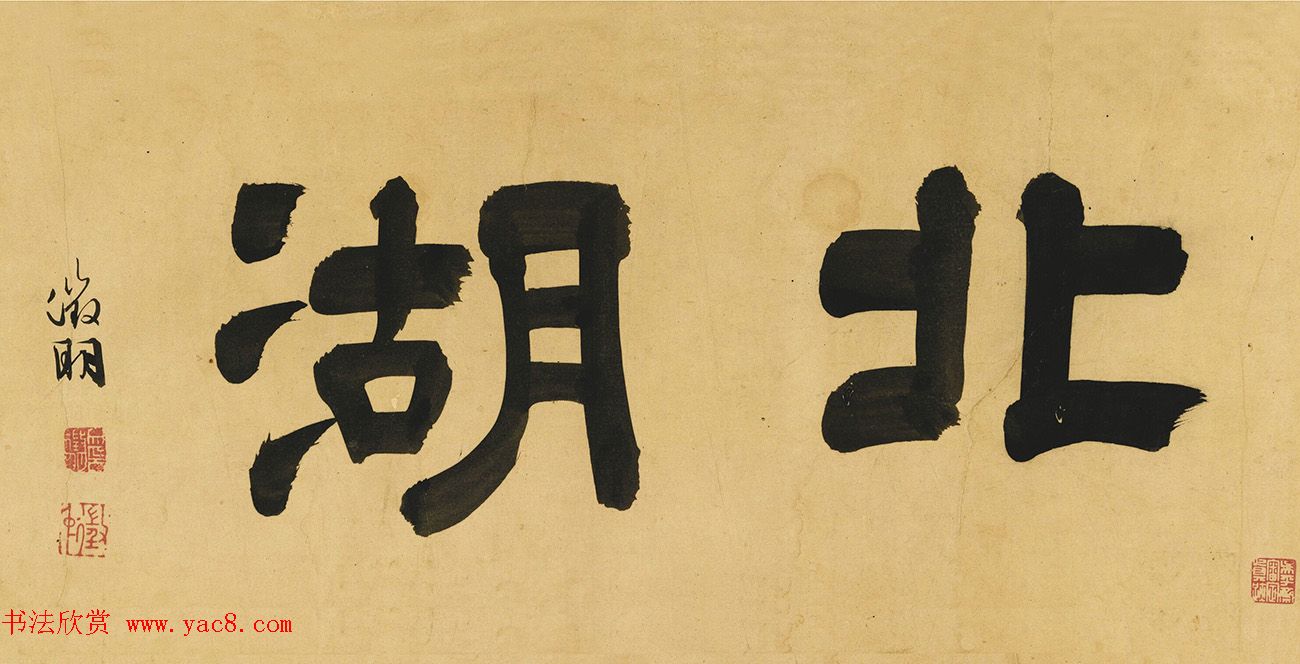 北湖
徵明
书法欣赏 www.yac8.com